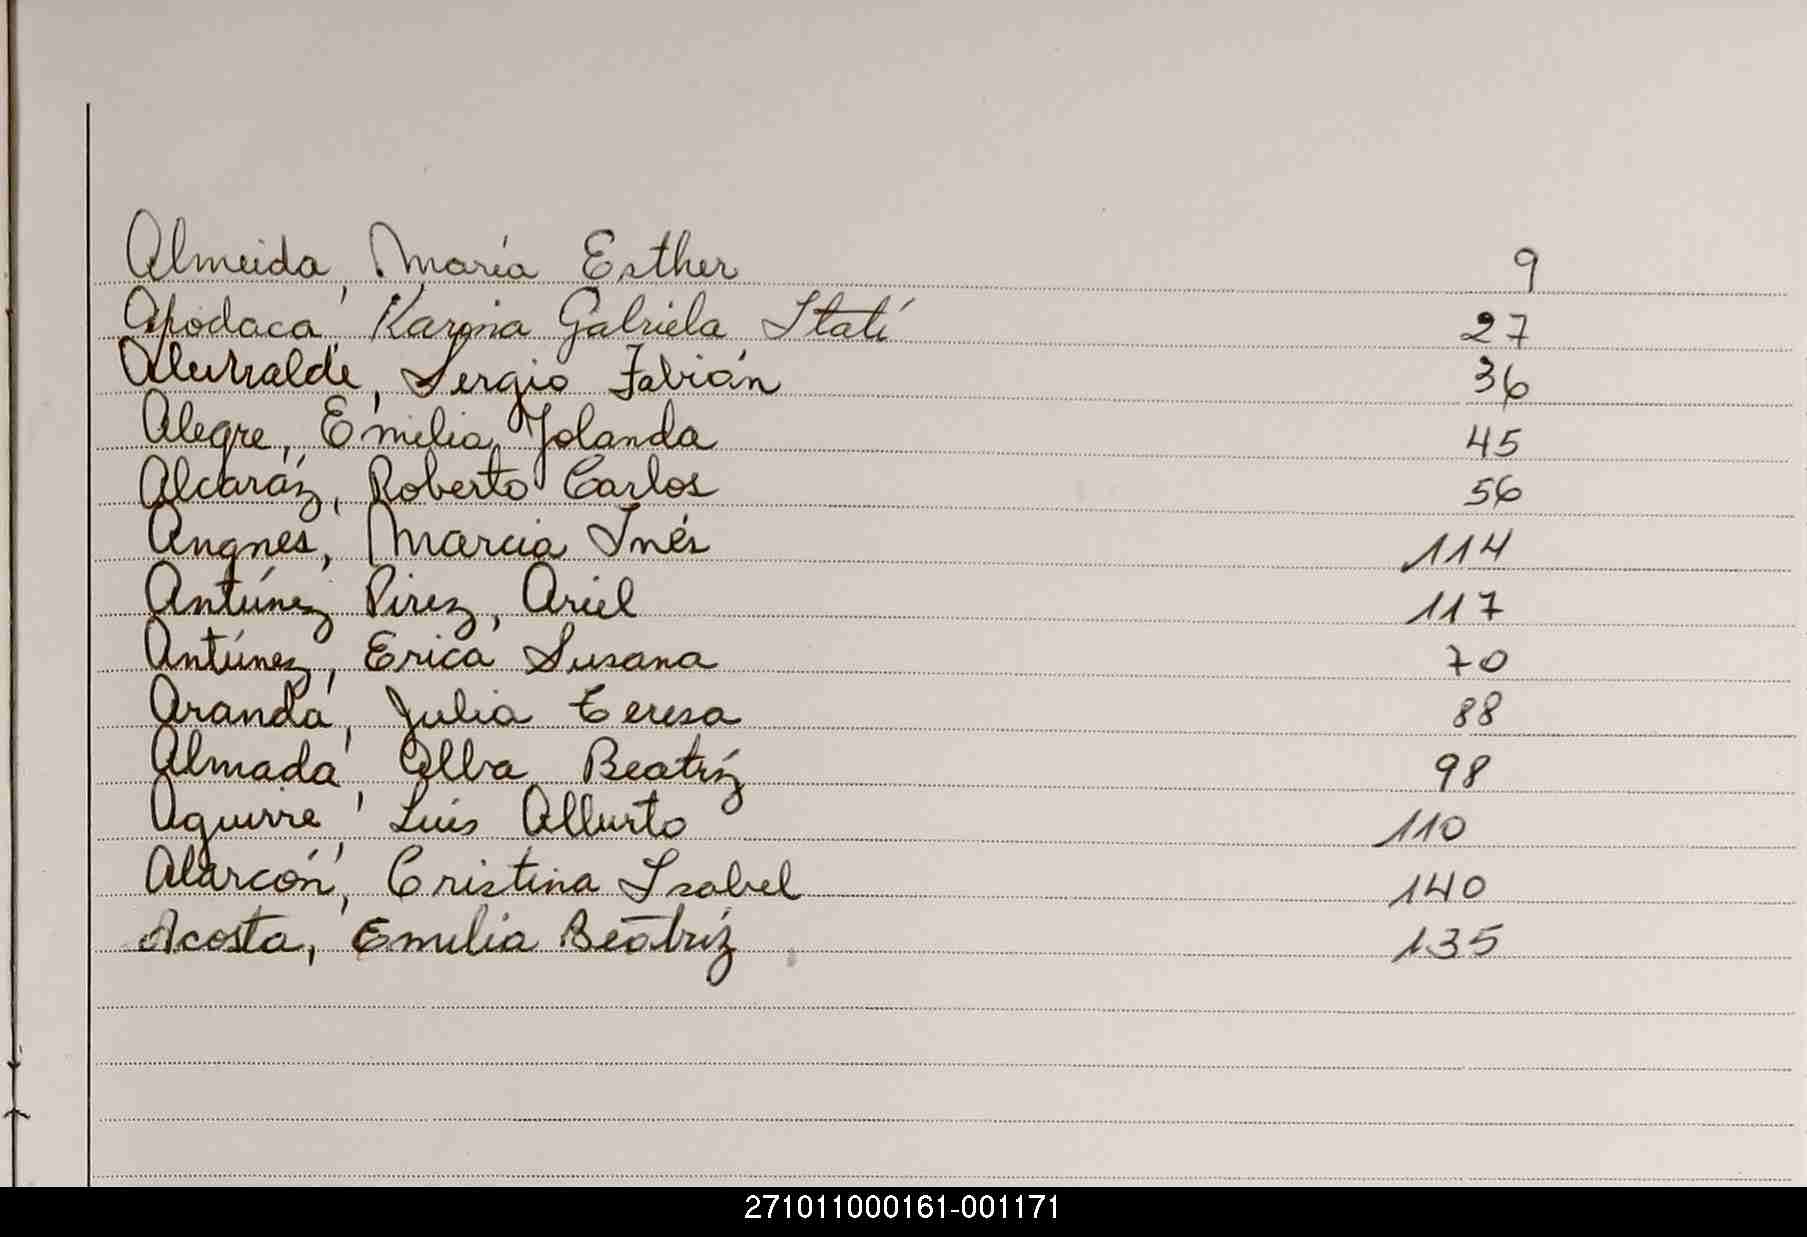 Almeida, María Esther 9
Apodaca, Karina Gabriela Itatí 27
Alurralde, Sergio Fabián 36
Alegre, Emilia Yolanda 45
Alcaráz, Roberto Carlos 56
Angnes, Marcia Inés 114
Antúnez Pirez, Ariel 117
Antúnez, Erica Susana 70
Aranda, Julia Teresa 88
Almada, Alba Beatríz 98
Aguirre, Luis Alberto 110
Alarcón, Cristina Isabel 140
Acosta, Emilia Beatríz 135
271011000161-001171